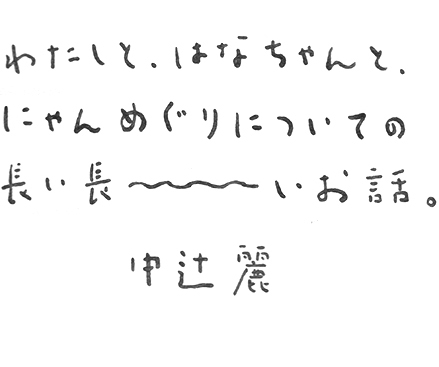 わたしと、はなちゃんと、
にゃんめぐりについての
長い長〜〜〜いお話。
中辻麗